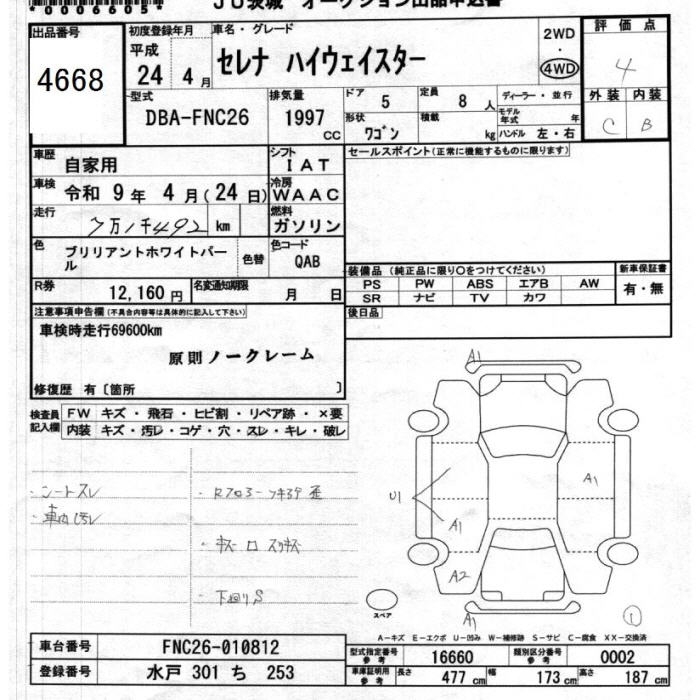 *0006605*
JU茨城 オークション出品申込書
出品番号
4668
初度登録年月
平成
24年4月
車名・グレード
セレナ ハイウェイスター
2WD
・
4WD
評価点
4
外装 内装
C B
型式
DBA-FNC26
排気量
1997
CC
ドア 5
定員 8 人
形状
ワゴン
積載 kg
ディーラー・並行
モデル年式 年
ハンドル 左・右
車歴
自家用
シフト
IAT
車検
令和 9 年 4 月(24 日)
冷房
WAAC
走行
7万1千492 km
燃料
ガソリン
色
ブリリアントホワイトパール
色替
色コード
QAB
R券
12,160 円
名変通知期限
月 日
セールスポイント(正常に機能するものに限ります)
装備品(純正品に限り○をつけてください)
新車保証書
PS PW ABS エアB AW
SR ナビ TV カワ
有・無
後日品
注意事項申告欄(不具合内容等は具体的に記入して下さい)
車検時走行69600km
原則ノークレーム
修復歴 有〔箇所 〕
検査員記入欄
FW キズ・飛石・ヒビ割・リペア跡・×要
内装 キズ・汚レ・コゲ・穴・スレ・キレ・破レ
・シートスレ
・車内汚レ
・下廻りS
A1
U1
A1
A1
A2
A1
スペア
1
A-キズ E-エクボ U-凹み W-補修跡 S-サビ C-腐食 XX-交換済
車台番号 FNC26-010812
登録番号 水戸 301 ち 253
型式指定番号 参考 16660
類別区分番号 参考 0002
車庫証明用 参考
長さ 477 cm
幅 173 cm
高さ 187 cm